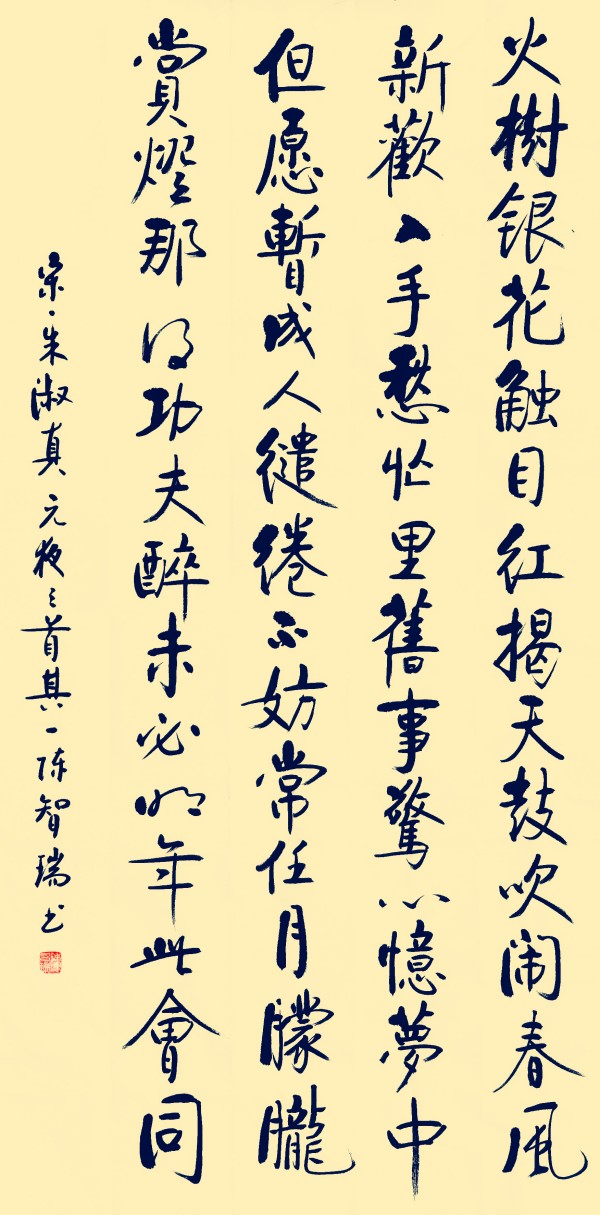 火樹银花触目红揭天鼓吹闹春风
新歡入手愁忙里舊事驚心憶夢中
但愿暫成人缱绻不妨常任月朦朧
賞燈那得功夫醉未必明年此會同
宋·朱淑真元夜三首其一陈智瑞书